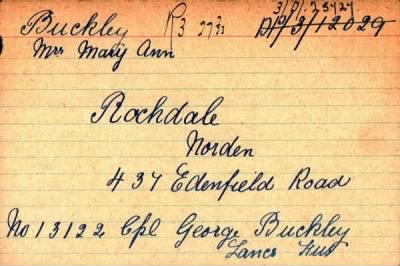 Buckley
3/P/. 25727.
D/3/12029
Mrs Mary Ann
Rochdale
Norden
437 Edenfield Road
No 13122 Cpl George Buckley
Lancs Fus